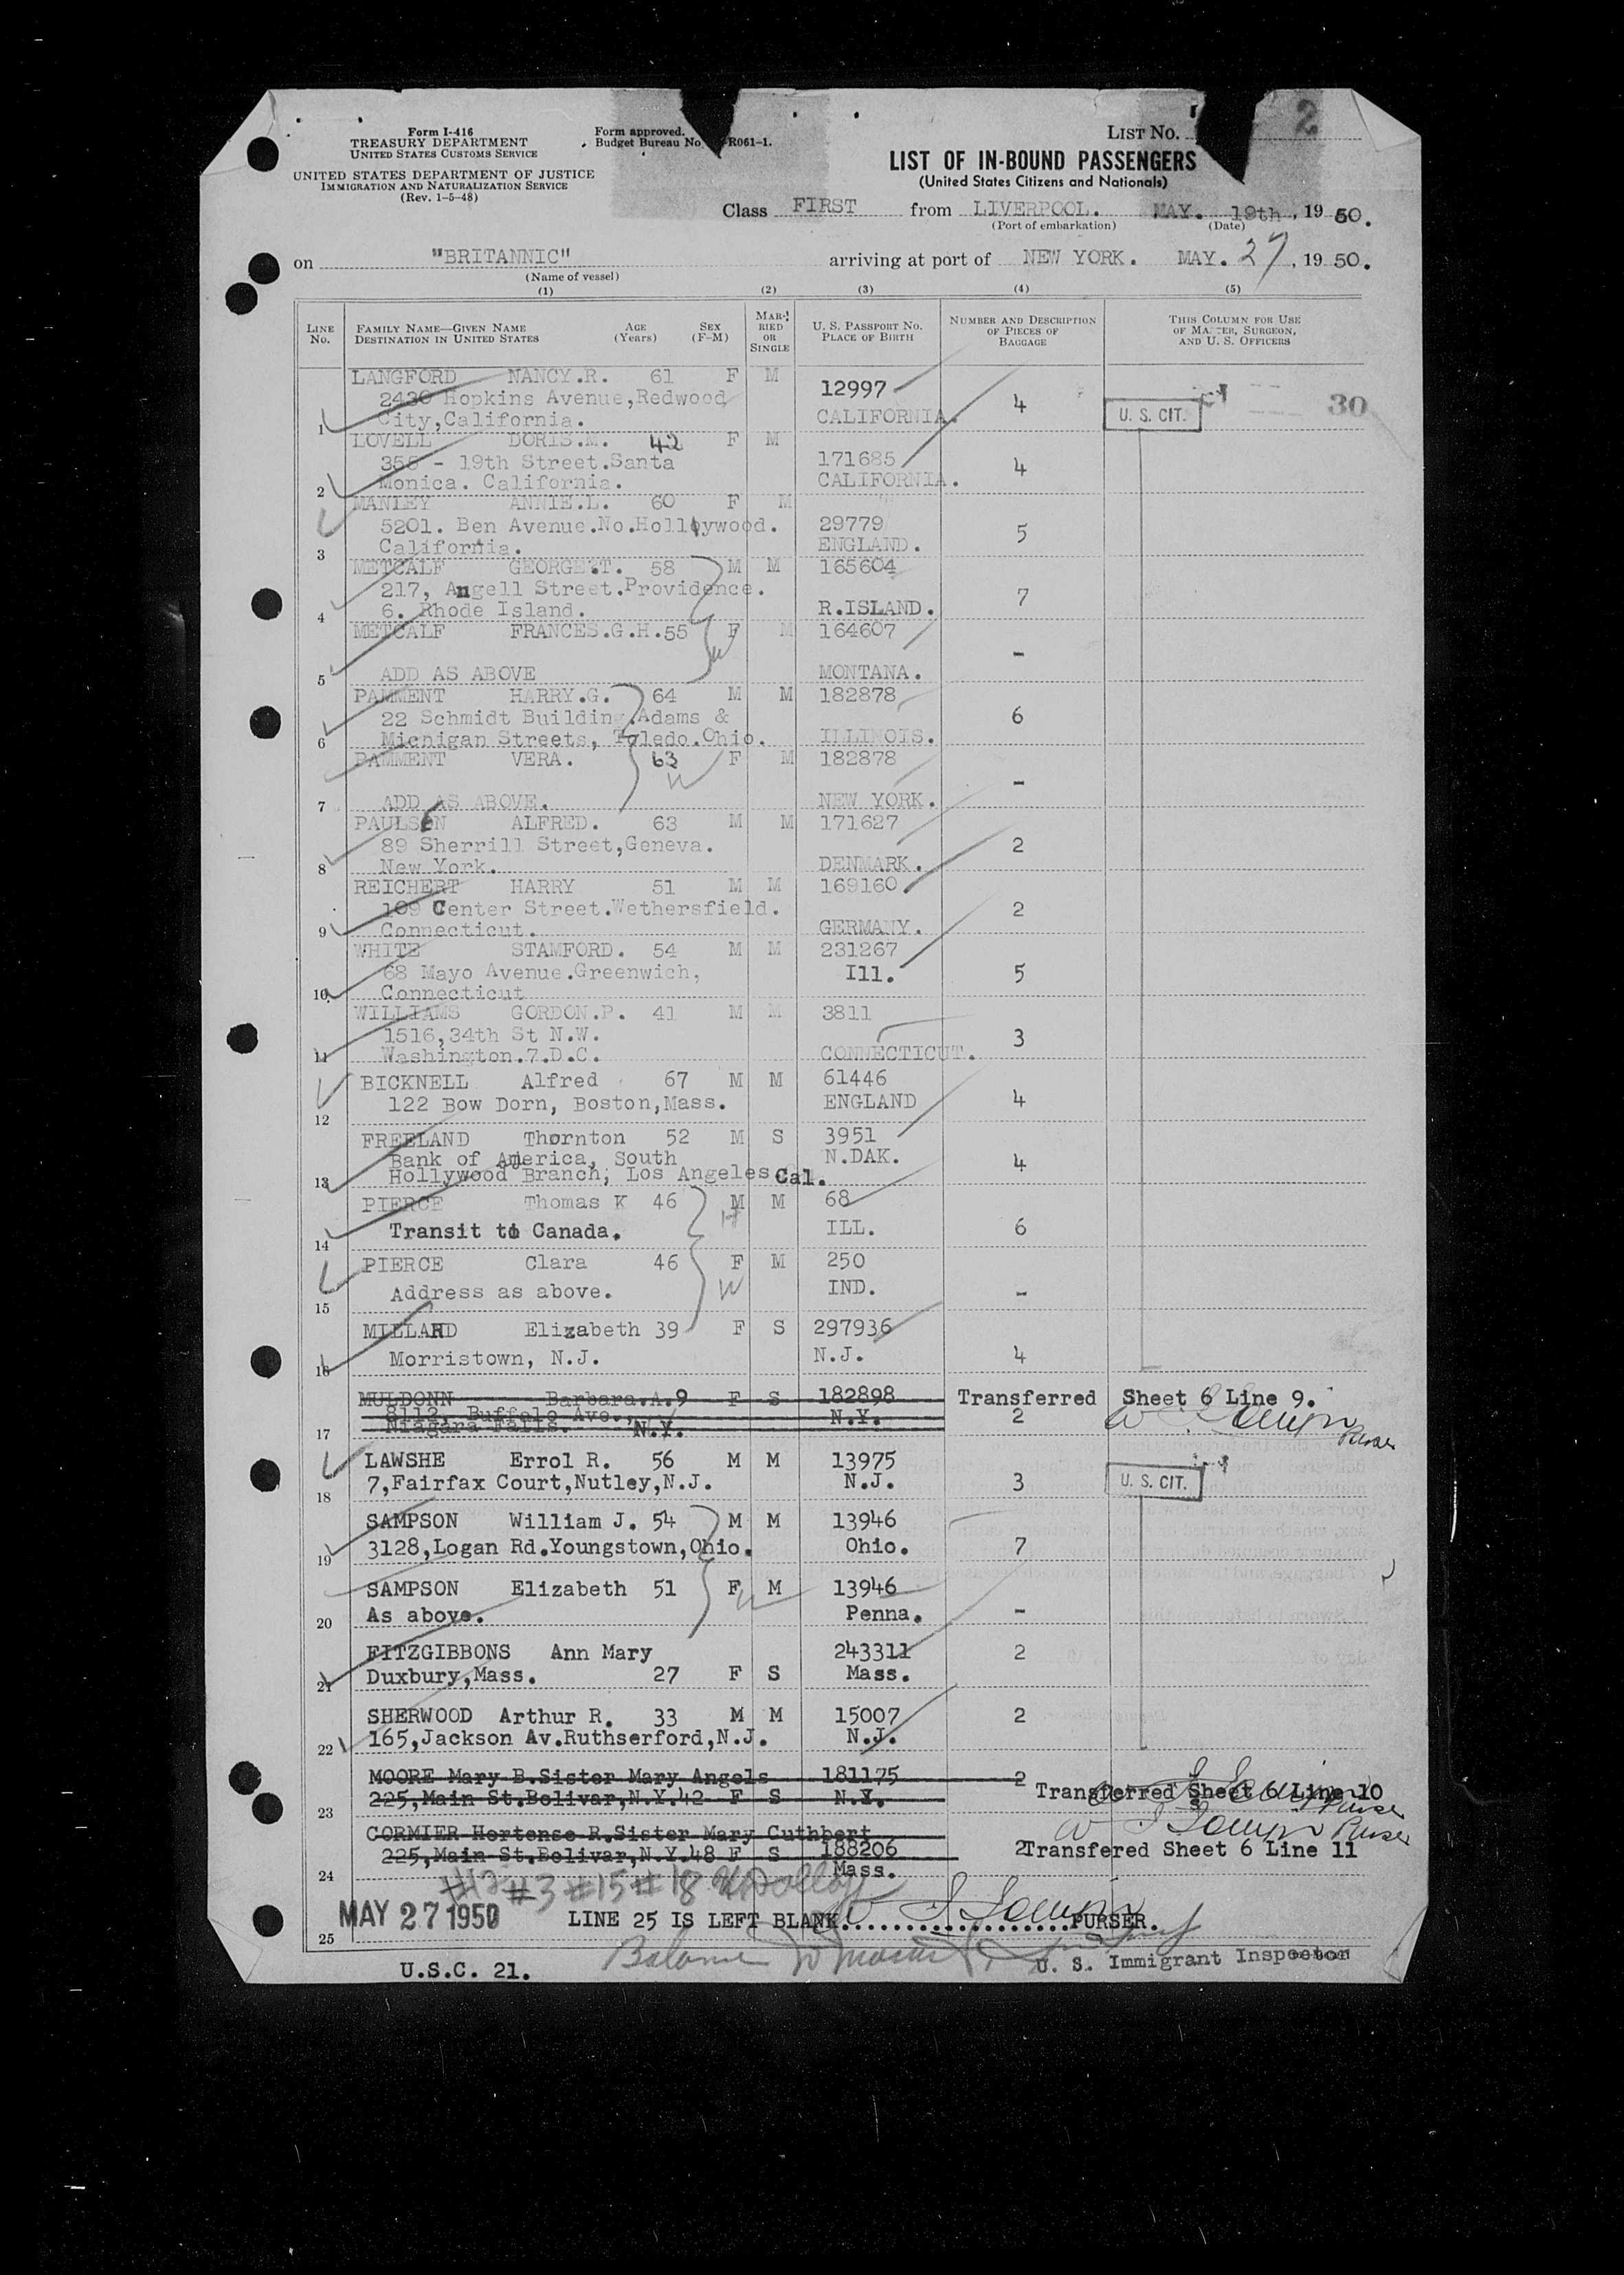 Form I-416
TREASURY DEPARTMENT
UNITED STATES CUSTOMS SERVICE
UNITED STATES DEPARTMENT OF JUSTICE
IMMIGRATION AND NATURALIZATION SERVICE
(Rev. 1-5-48)
Form approved.
Budget Bureau No -R061-1.
LIST NO. 2
LIST OF IN-BOUND PASSENGERS
(United States Citizens and Nationals)
Class FIRST from LIVERPOOL. MAY. 19th, 1950.
(Port of embarkation) (Date)
on "BRITANNIC" arriving at port of NEW YORK. MAY. 27, 1950.
(Name of vessel)
(1) (2) (3) (4) (5)
LINE NO. FAMILY NAME—GIVEN NAME DESTINATION IN UNITED STATES AGE (Years) SEX (F-M) MARRIED OR SINGLE U. S. PASSPORT NO. PLACE OF BIRTH NUMBER AND DESCRIPTION OF PIECES OF BAGGAGE THIS COLUMN FOR USE OF MASTER, SURGEON, AND U. S. OFFICERS
LANGFORD NANCY.R. 61 F M 12997 4 30
2430 Hopkins Avenue,Redwood U. S. CIT.
1 City,California. CALIFORNIA.
LOVELL DORIS.M. 42 F M
355 - 19th Street.Santa 171685 4
2 Monica. California. CALIFORNIA.
MANLEY ANNIE.L. 60 F M
5201. Ben Avenue.No.Hollywood. 29779 5
3 California. ENGLAND.
METCALF GEORGE.T. 58 M M 165604
217, Angell Street.Providence. 7
4 6. Rhode Island. R.ISLAND.
METCALF FRANCES.G.H.55 F M 164607
W -
5 ADD AS ABOVE MONTANA.
PAMMENT HARRY.G. 64 M M 182878
22 Schmidt Building.Adams & 6
6 Michigan Streets, Toledo.Ohio. ILLINOIS.
PAMMENT VERA. 63 F M 182878
W -
7 ADD AS ABOVE. NEW YORK.
PAULSEN ALFRED. 63 M M 171627
89 Sherrill Street,Geneva. 2
8 New York. DENMARK.
REICHERT HARRY 51 M M 169160
109 Center Street.Wethersfield. 2
9 Connecticut. GERMANY.
WHITE STAMFORD. 54 M M 231267
68 Mayo Avenue.Greenwich, Ill. 5
10 Connecticut
WILLIAMS GORDON.P. 41 M M 3811
1516,34th St N.W. 3
11 Washington.7.D.C. CONNECTICUT.
BICKNELL Alfred 67 M M 61446
122 Bow Dorn, Boston,Mass. ENGLAND 4
12
FREELAND Thornton 52 M S 3951
Bank of America, South N.DAK. 4
13 Hollywood Branch, Los Angeles Cal.
PIERCE Thomas K 46 M M 68
H
14 Transit to Canada. ILL. 6
PIERCE Clara 46 F M 250
Address as above. W IND. -
15
MILLARD Elizabeth 39 F S 297936
16 Morristown, N.J. N.J. 4
MULDONN Barbara.A.9 F S 182898 Transferred Sheet 6 Line 9.
8112, Buffalo Ave., N.Y. 2
17 Niagara Falls. N.Y. Purser
LAWSHE Errol R. 56 M M 13975
18 7,Fairfax Court,Nutley,N.J. N.J. 3 U. S. CIT.
SAMPSON William J. 54 M M 13946
19 3128,Logan Rd.Youngstown,Ohio. Ohio. 7
SAMPSON Elizabeth 51 F M 13946
W
20 As above. Penna. -
FITZGIBBONS Ann Mary 243311 2
21 Duxbury,Mass. 27 F S Mass.
SHERWOOD Arthur R. 33 M M 15007 2
22 165,Jackson Av.Ruthserford,N.J. N.J.
MOORE Mary B.Sister Mary Angels 181175 2 Transferred Sheet 6 Line 10
23 225,Main St.Bolivar,N.Y.42 F S N.Y. Purser
CORMIER Hortense R.Sister Mary Cuthbert Purser
225,Main St.Bolivar,N.Y.48 F S 188206 2 Transfered Sheet 6 Line 11
24 Mass.
#12 #3 #15 #18
MAY 27 1950 LINE 25 IS LEFT BLANK PURSER.
25
Balance to
U.S.C. 21. U. S. Immigrant Inspector